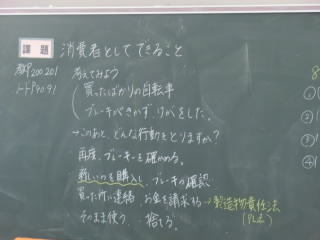 課題 消費者としてできること
教P200.201 考えてみよう
ノートP90.91 買ったばかりの自転車
ブレーキがきかず、けがをした。
→このあと、どんな行動をとりますか?
再度、ブレーキを確かめる。
新しいのを購入し、ブレーキの確認
買った所に連絡、お金を請求する→製造物責任法
(PL法)
そのまま使う、捨てる
8
①(
②(
③(
④(